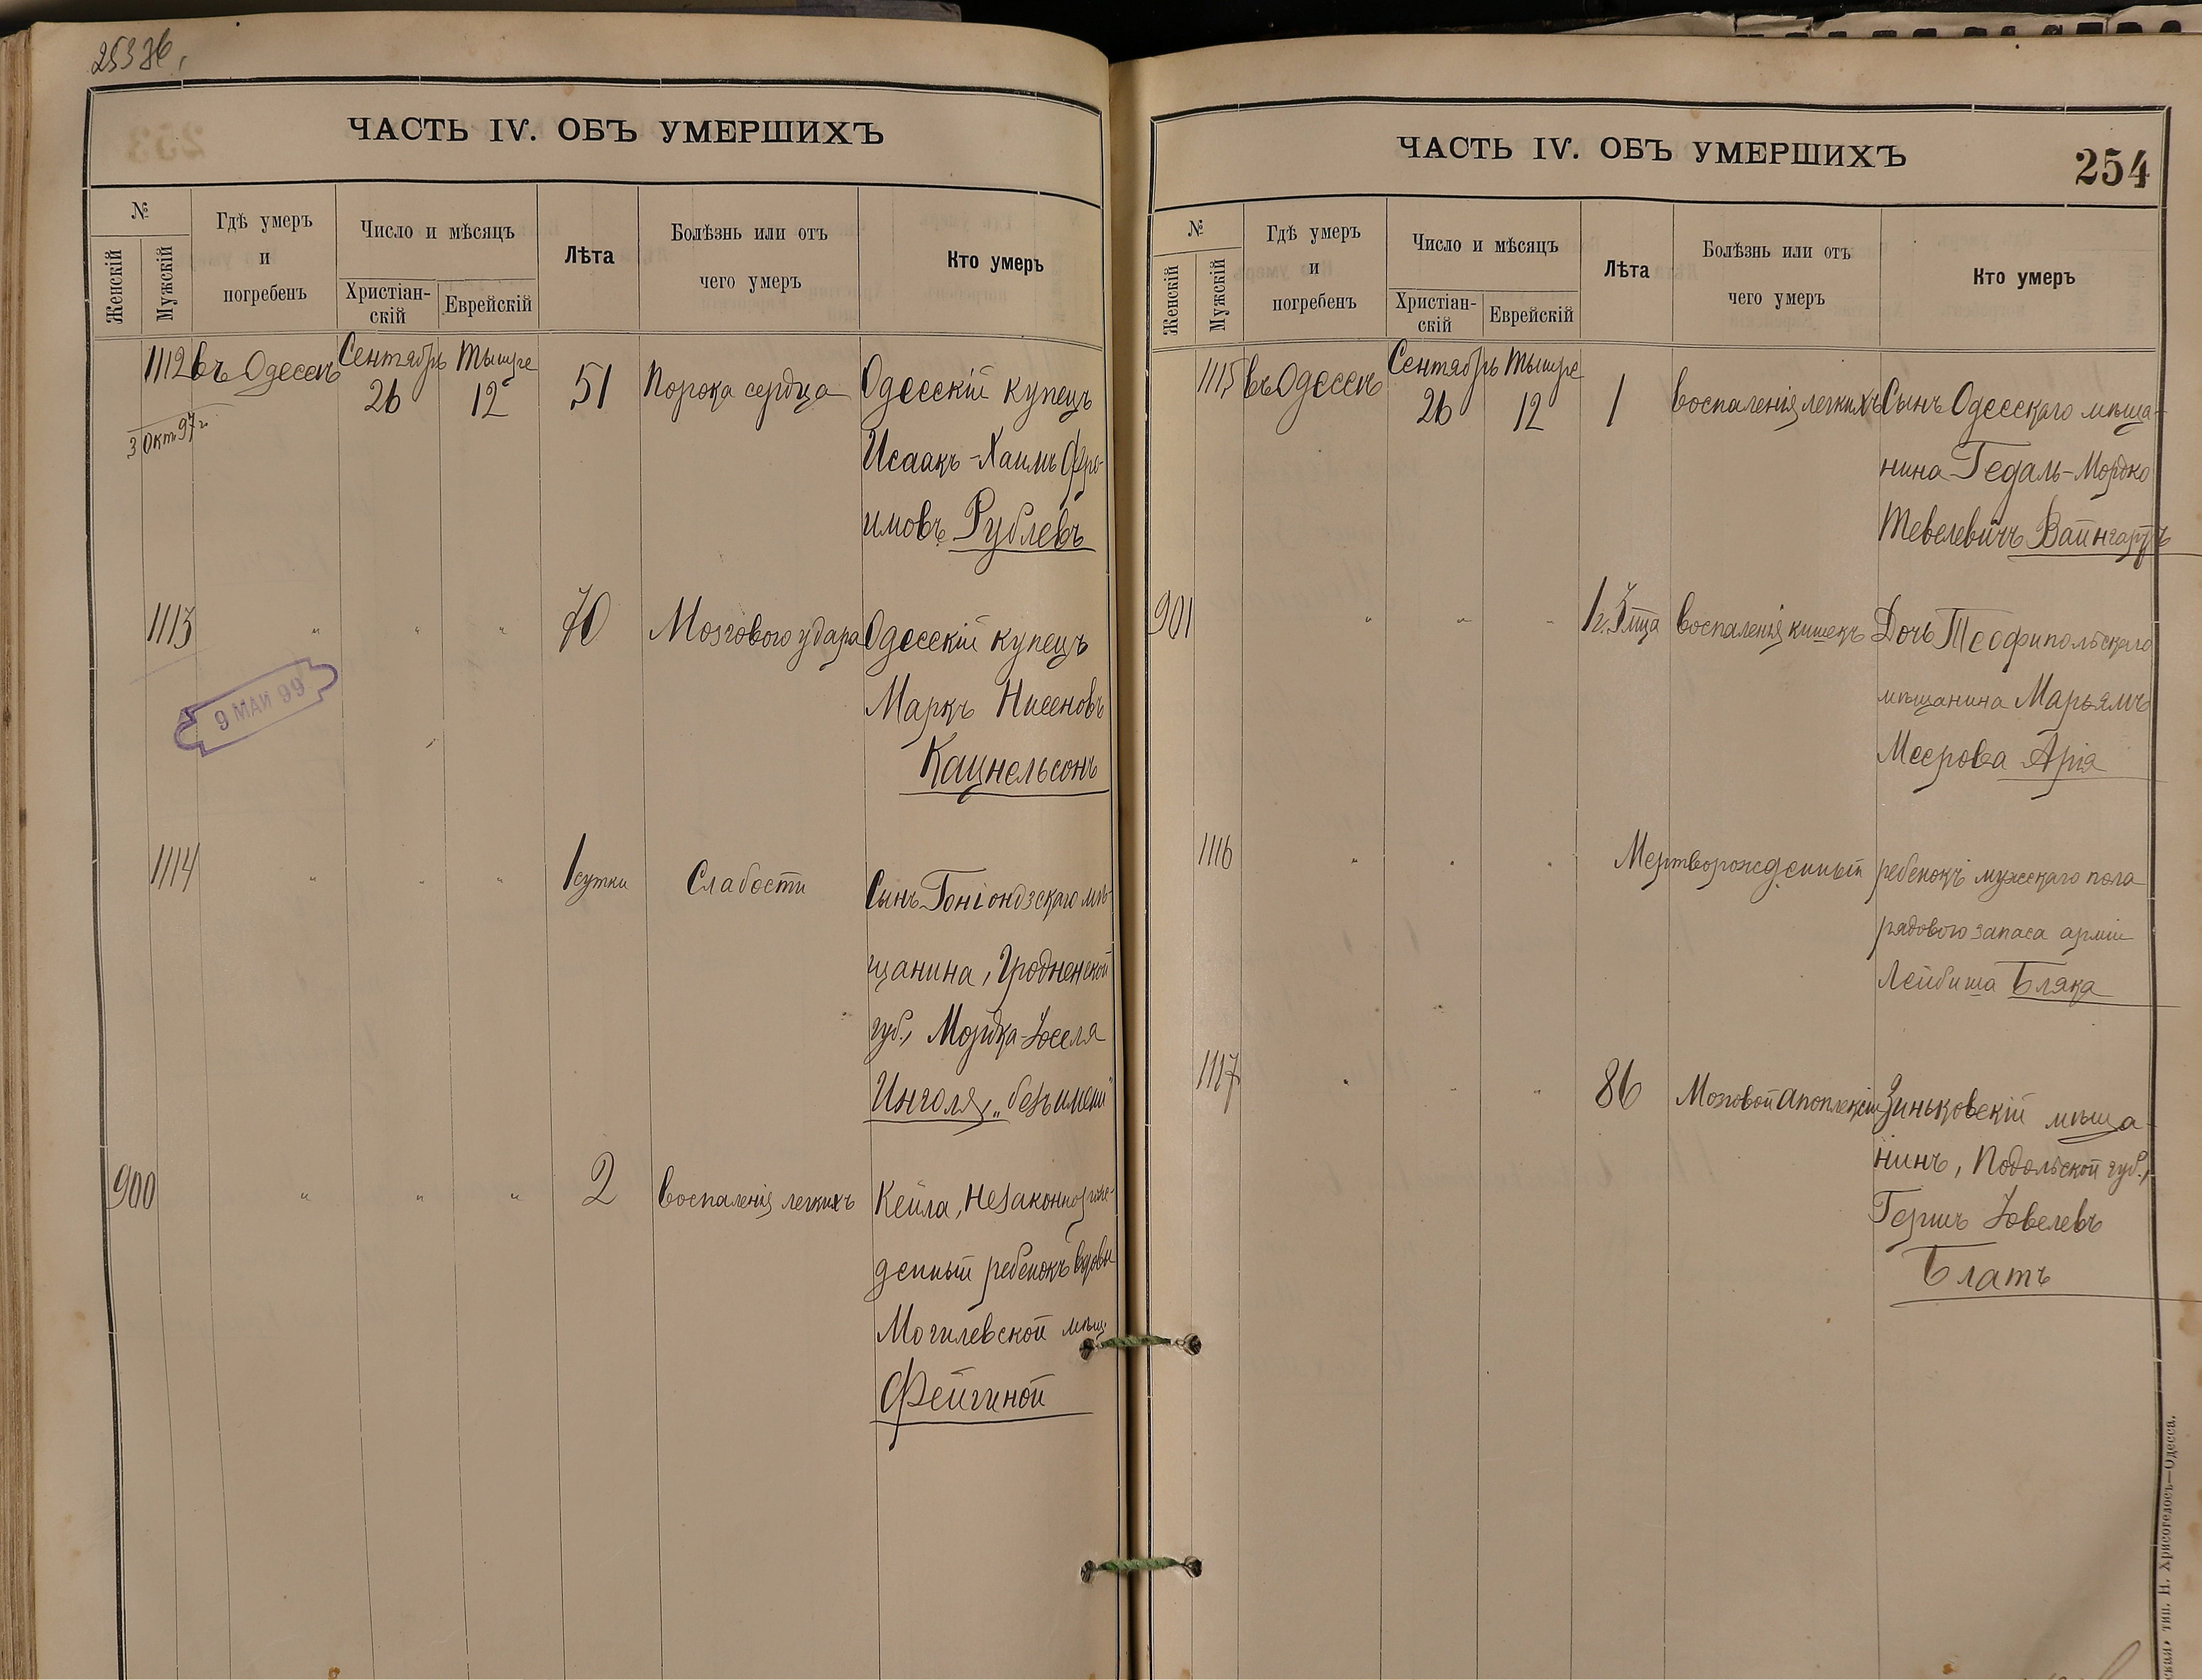 ЧАСТЬ IV. ОБЪ УМЕРШИХЪ
№
Женскій
Мужскій
Гдѣ умеръ
и
погребенъ
Число и мѣсяцъ
Христіан-
скій
Еврейскій
Лѣта
Болѣзнь или отъ
чего умеръ
Кто умеръ
1112
въ Одессѣ
Сентябрь
26
Тышре
12
51
Порока сердца
Одесскій купецъ
Исаакъ-Хаимъ Фро-
имовъ Рублевъ
3 Окт. 97 г.
1113
" " "
70
Мозгового удара
Одесскій купецъ
Маркъ Нисеновъ
Кацнельсонъ
9 МАИ 99
1114
" " "
1 сутки
Слабости
Сынъ Гоніондзскаго мѣ-
щанина, Гродненской
губ., Мордка-Іоселя
Инголя, „безъ имени"
900
" " "
2
Воспаленія легкихъ
Кейла, незаконнорож-
денный ребенокъ вдовы
Могилевской мѣщ.
Фейгиной
ЧАСТЬ IV. ОБЪ УМЕРШИХЪ
254
№
Женскій
Мужскій
Гдѣ умеръ
и
погребенъ
Число и мѣсяцъ
Христіан-
скій
Еврейскій
Лѣта
Болѣзнь или отъ
чего умеръ
Кто умеръ
1115
въ Одессѣ
Сентябрь
26
Тышре
12
1
Воспаленія легкихъ
Сынъ Одесскаго мѣща-
нина Гедаль-Мордко
Тевелевичъ Вайнгартъ
901
" " "
1 г. 5 м-ца
Воспаленія кишекъ
Дочь Теофипольскаго
мѣщанина Марьямъ
Меерова Арія
1116
" " "
Мертворожденный ребенокъ мужскаго пола
рядового запаса арміи
Лейбиша Бляка
1117
" " "
86
Мозговой апоплексіи
Зиньковскій мѣща-
нинъ, Подольской губ.,
Гершъ Іовелевъ
Блатъ
тип. Н. Хрисогелосъ—Одесса.